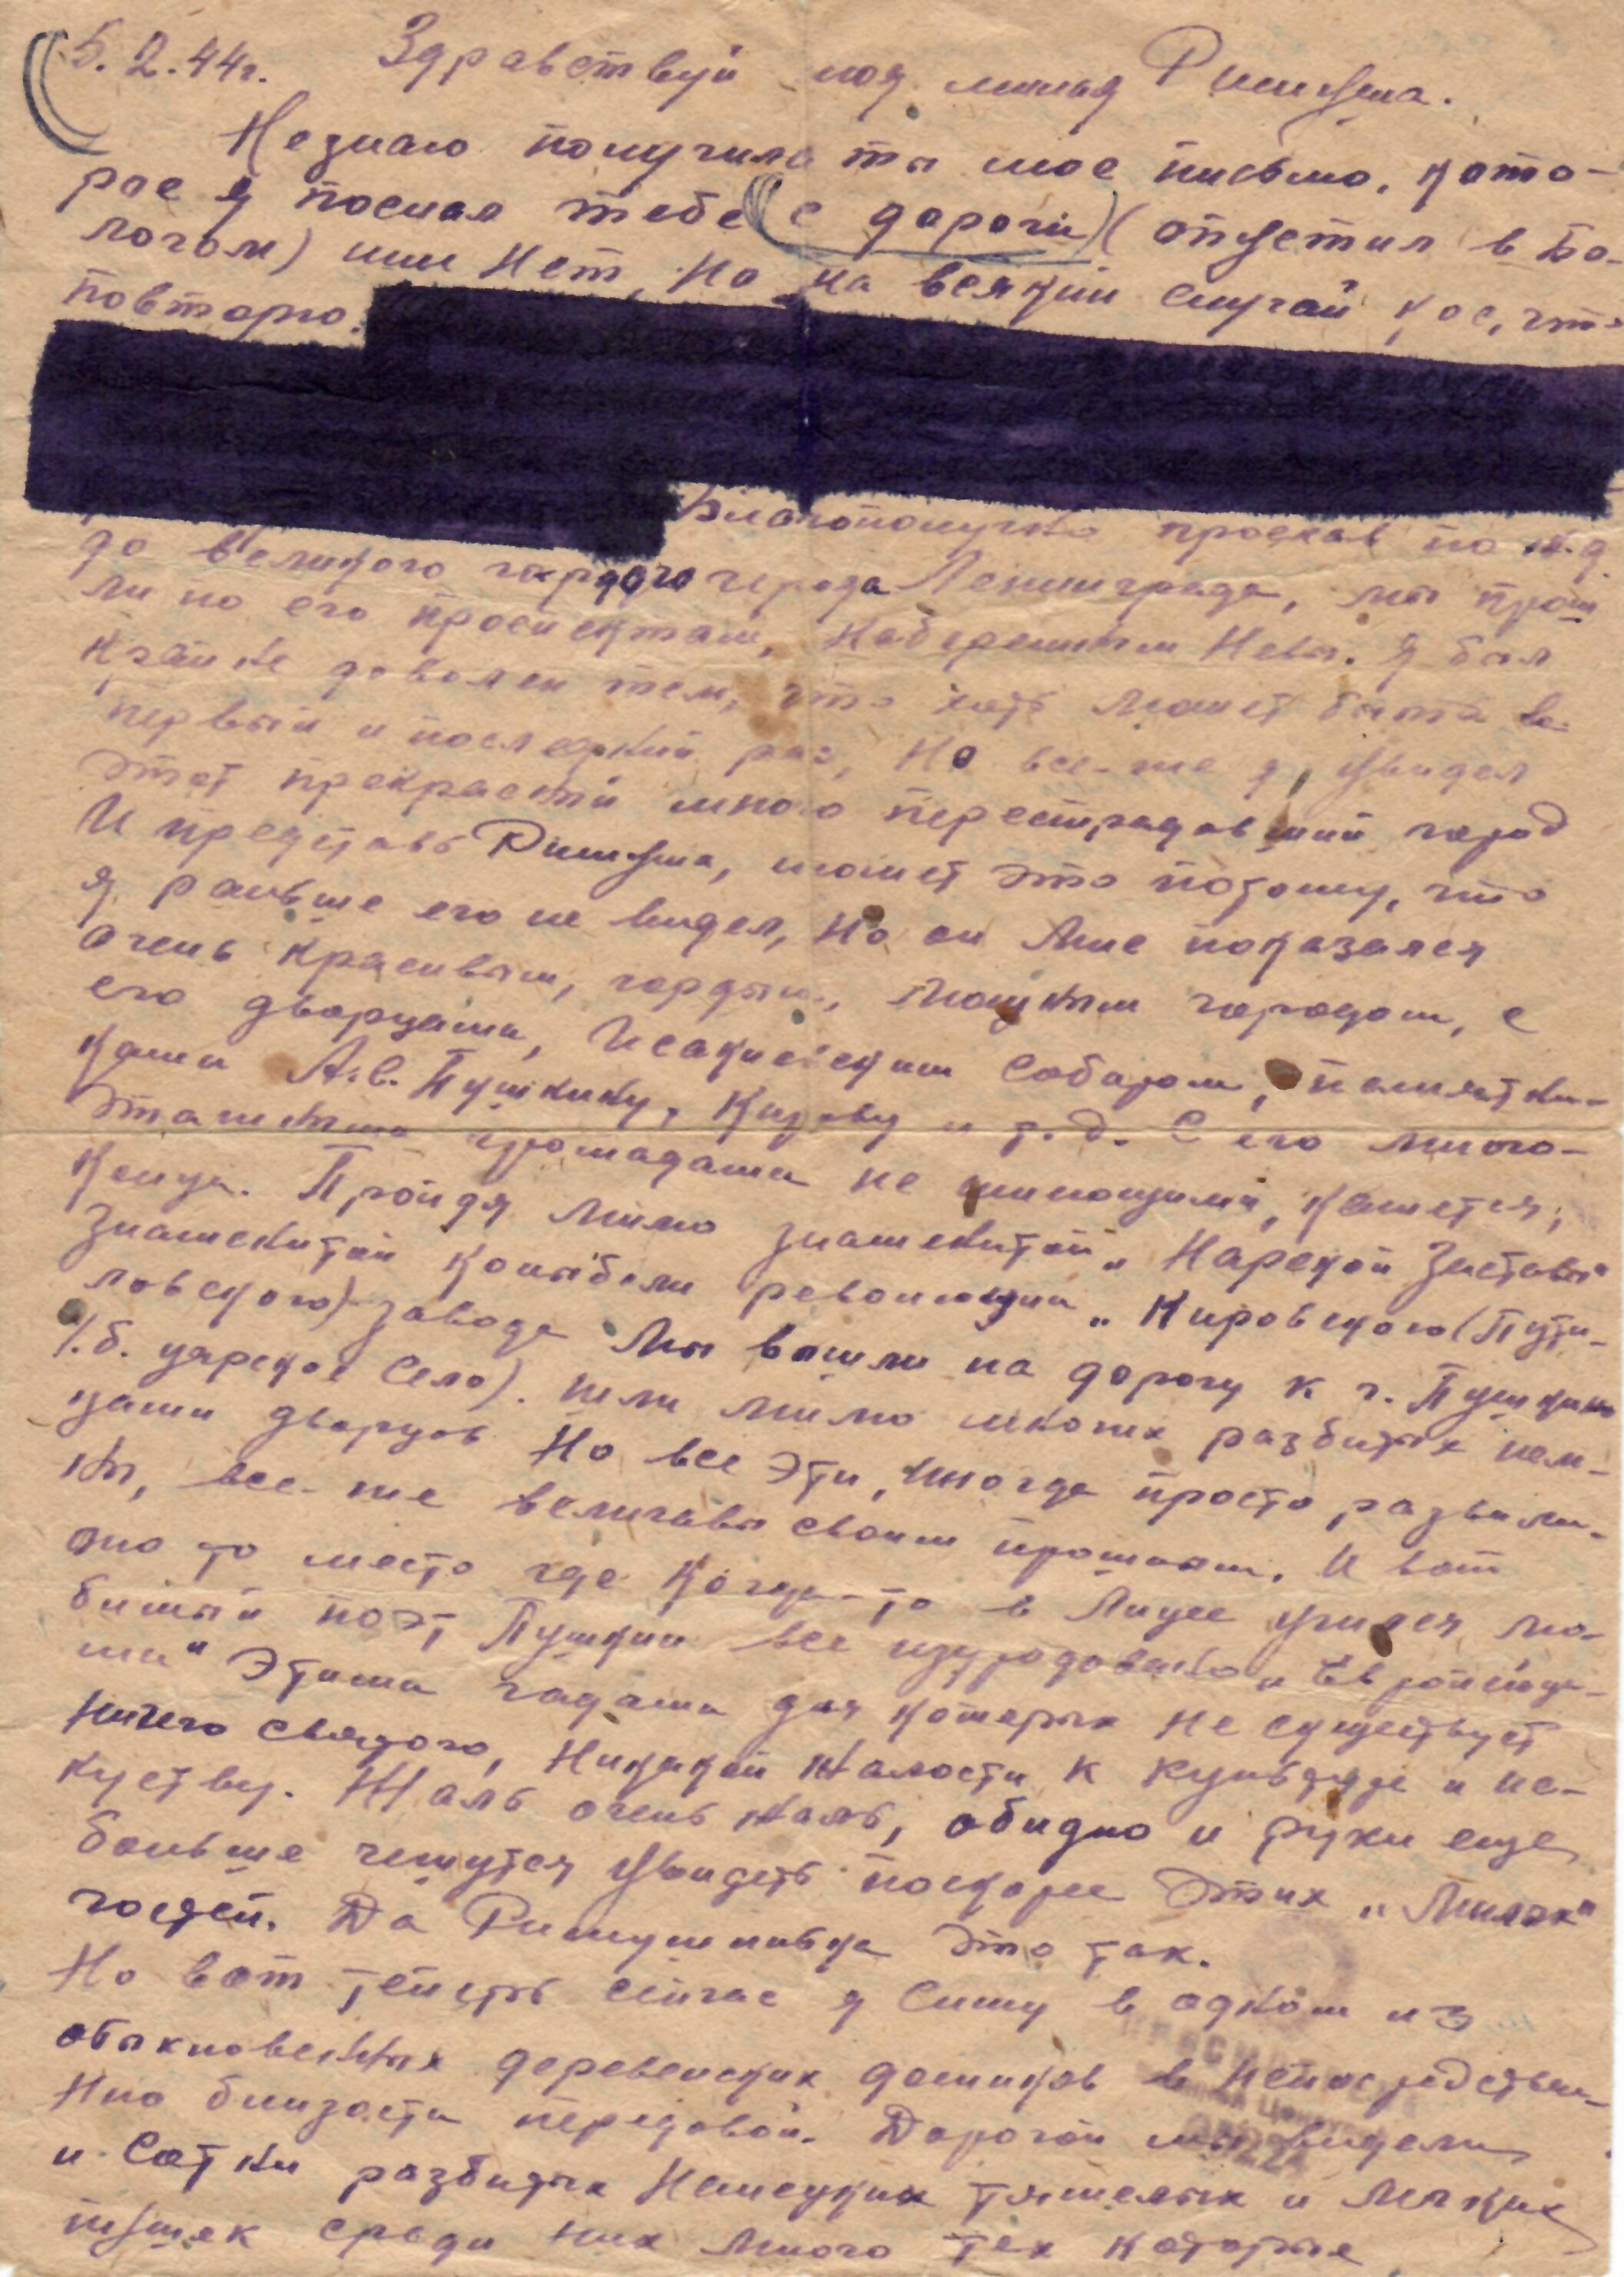 5.2.44г. Здравствуй моя милая Римуша.
Незнаю получила ты мое письмо, кото-
рое я послал тебе (с дороги) (опустил в Бо-
логом) или нет, но на всякий случай кое, что
повторю.
Благополучно проехав по ж.д.
до великого гордого города Ленинграда, мы прош
ли по его проспектам, набережным Невы. Я был
крайне доволен тем, что хоть может быть в
первый и последний раз, но все-же я увидел
этот прекрасный много перестрадавший город
И представь Римуша, может это потому, что
я раньше его не видел, но он мне показался
очень красивым, гордым, мощным городом, с
его дворцами, Исакиевским Собором, памятни-
ками А.С. Пушкину, Кирову и т.д. С его много-
этажными громадами не имеющими, кажется,
конца. Пройдя мимо знаменитой „Нарской Заставы"
знаменитой колыбели революции „Кировского (Пути-
ловского) завода мы вышли на дорогу к г. Пушкин
(б. царское Село). шли мимо многих разбитых нем-
цами дворцов Но все эти, иногда просто развали-
ны, все-же величавы своим прошлым. И вот
оно то место где когда-то в Лицее учился лю-
бимый поэт Пушкин все изуродовано „Европейца-
ми" этими гадами для которых не существует
ничего святого, никакой жалости к культуре и ис-
куству. Жаль очень жаль, обидно и руки еще
больше чешутся увидеть поскорее этих „Милых"
гостей. Да Римушинька это так.
Но вот теперь сейчас я сижу в одном из
обыкновенных деревенских домиков в непосредствен-
нно близости передовой. Дорогой мы видели
и сотни разбитых Немецких тяжелых и легких
пушек среди них много тех которые